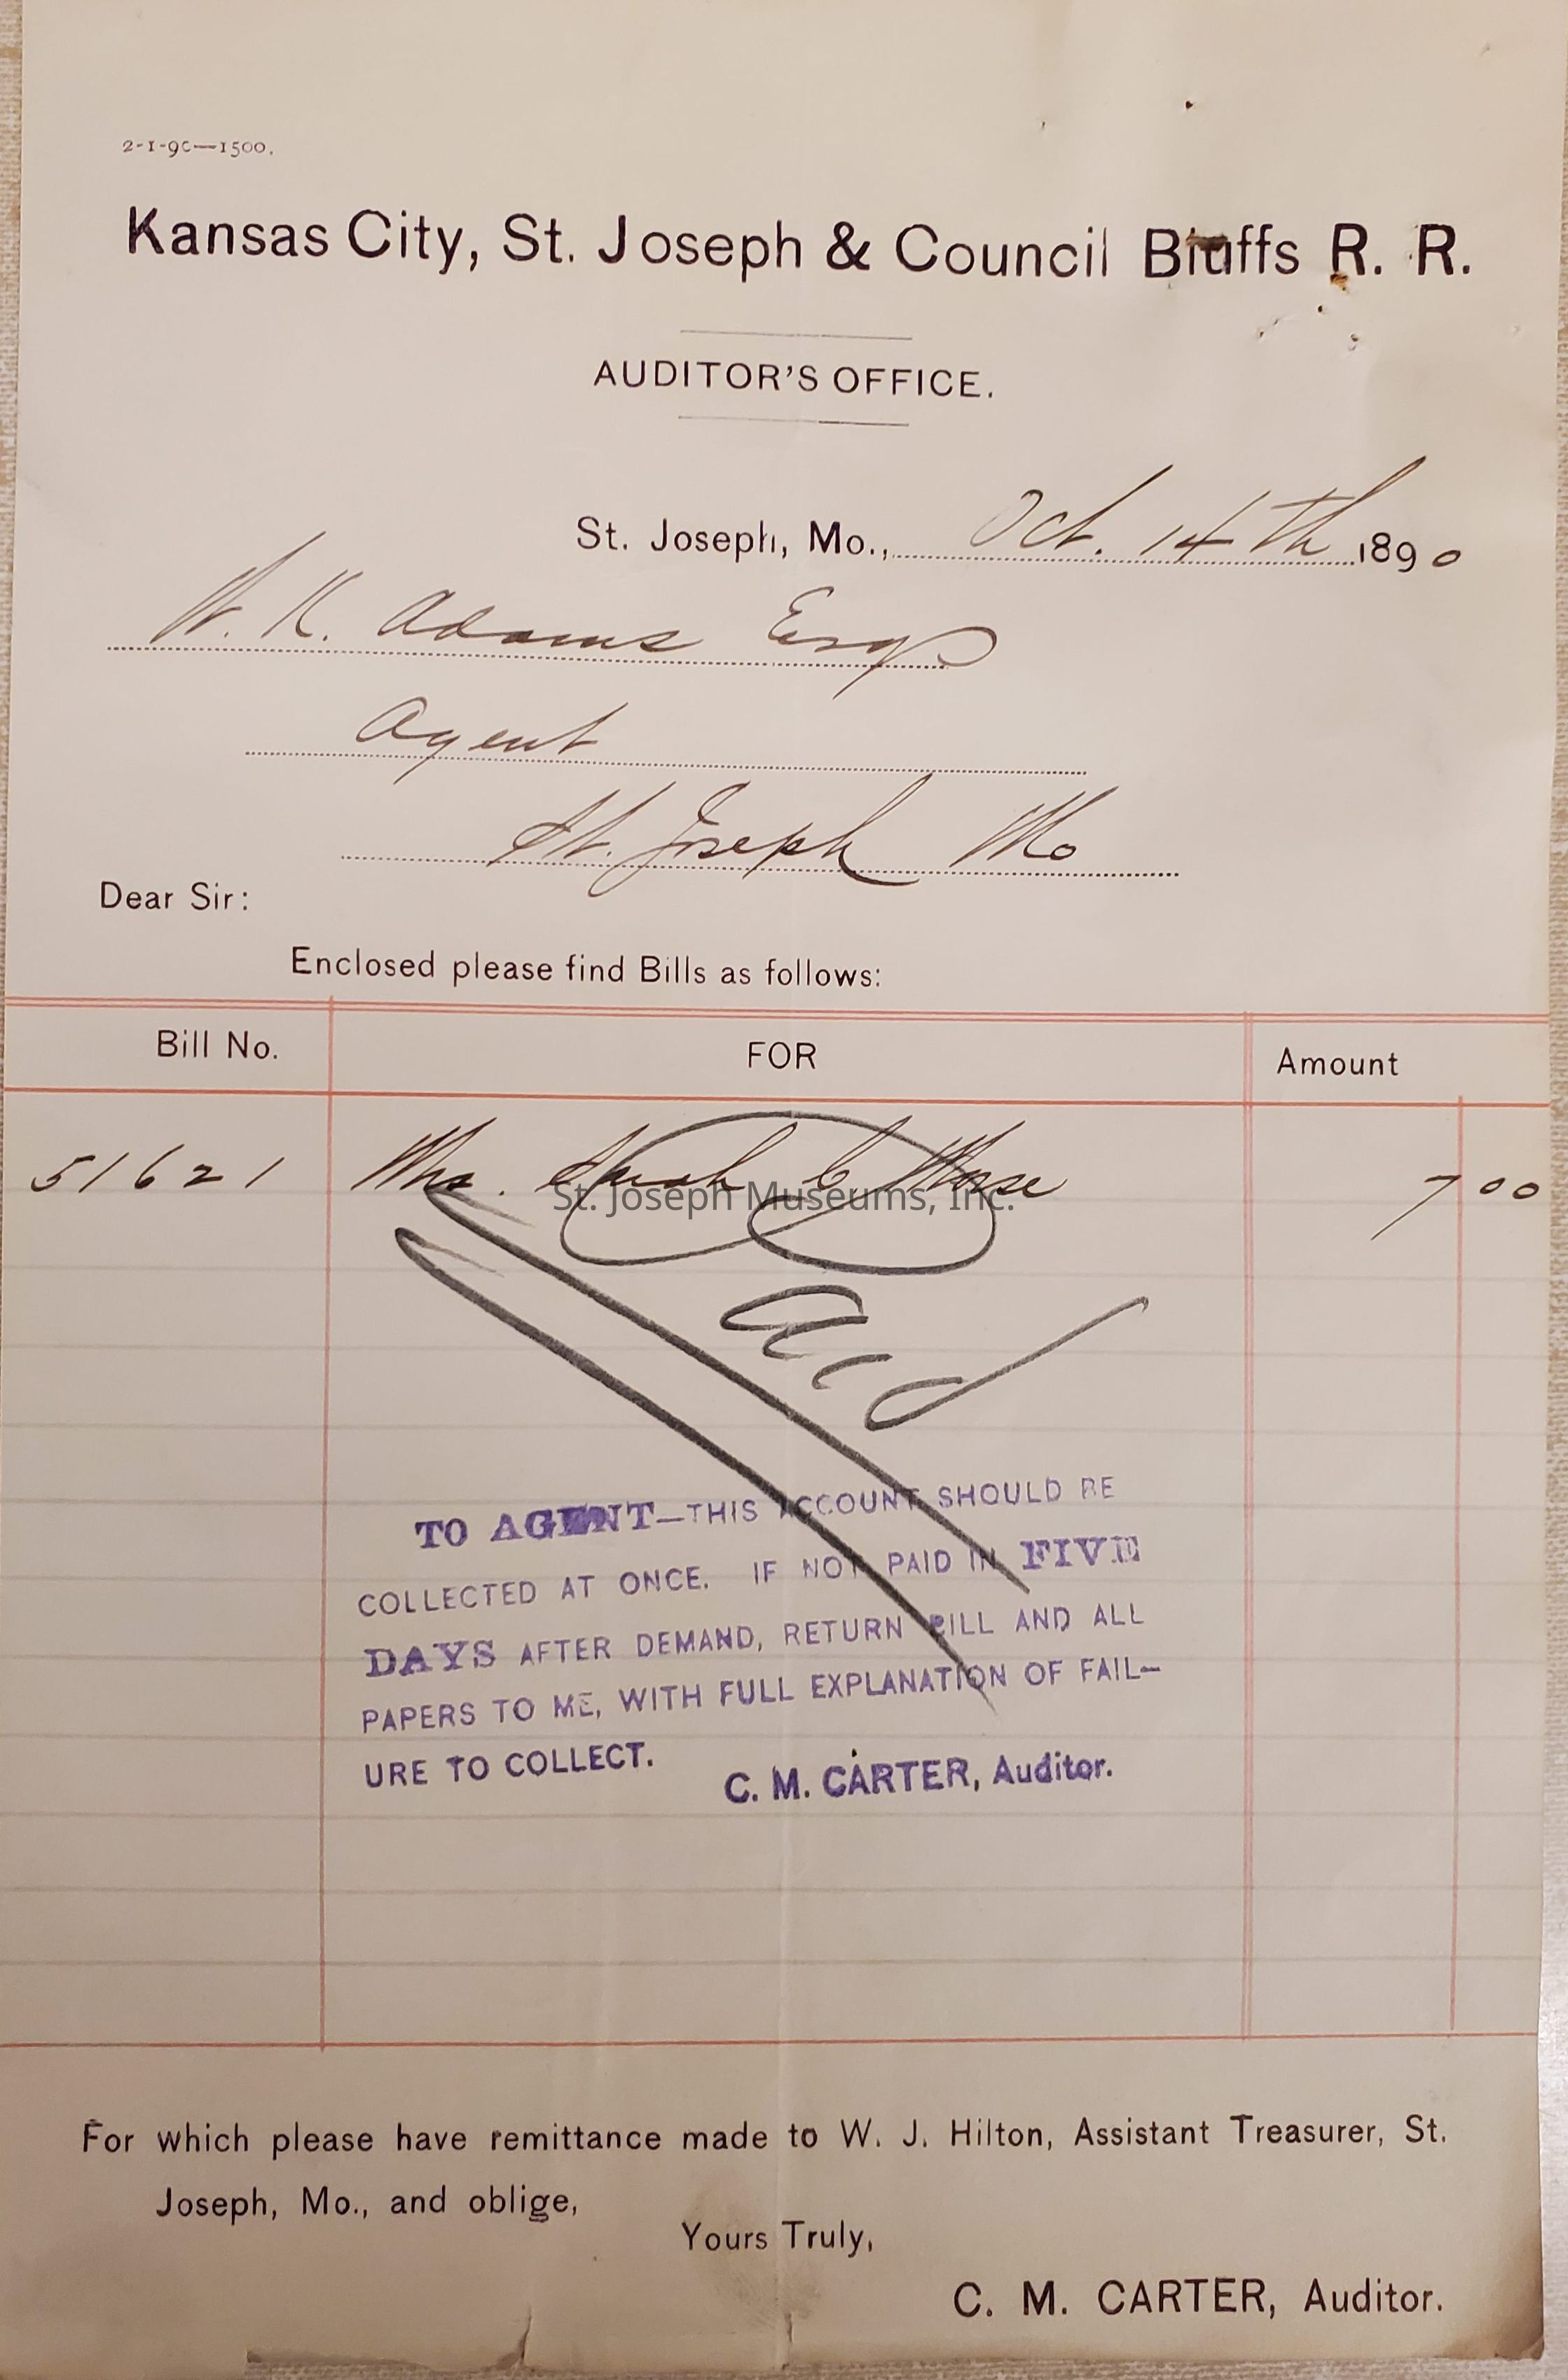 2-1-90—1500.
Kansas City, St. Joseph & Council Bluffs R. R.
AUDITOR'S OFFICE.
St. Joseph, Mo., Oct. 14th 1890
W. K. Adams Esq
Agent
St. Joseph Mo
Dear Sir:
Enclosed please find Bills as follows:
Bill No. FOR Amount
51621 Mrs. Sarah C Morse 7 00
St. Joseph Museums, Inc.
Paid
TO AGENT—THIS ACCOUNT SHOULD BE
COLLECTED AT ONCE. IF NOT PAID IN FIVE
DAYS AFTER DEMAND, RETURN BILL AND ALL
PAPERS TO ME, WITH FULL EXPLANATION OF FAIL-
URE TO COLLECT.
C. M. CARTER, Auditor.
For which please have remittance made to W. J. Hilton, Assistant Treasurer, St.
Joseph, Mo., and oblige,
Yours Truly,
C. M. CARTER, Auditor.